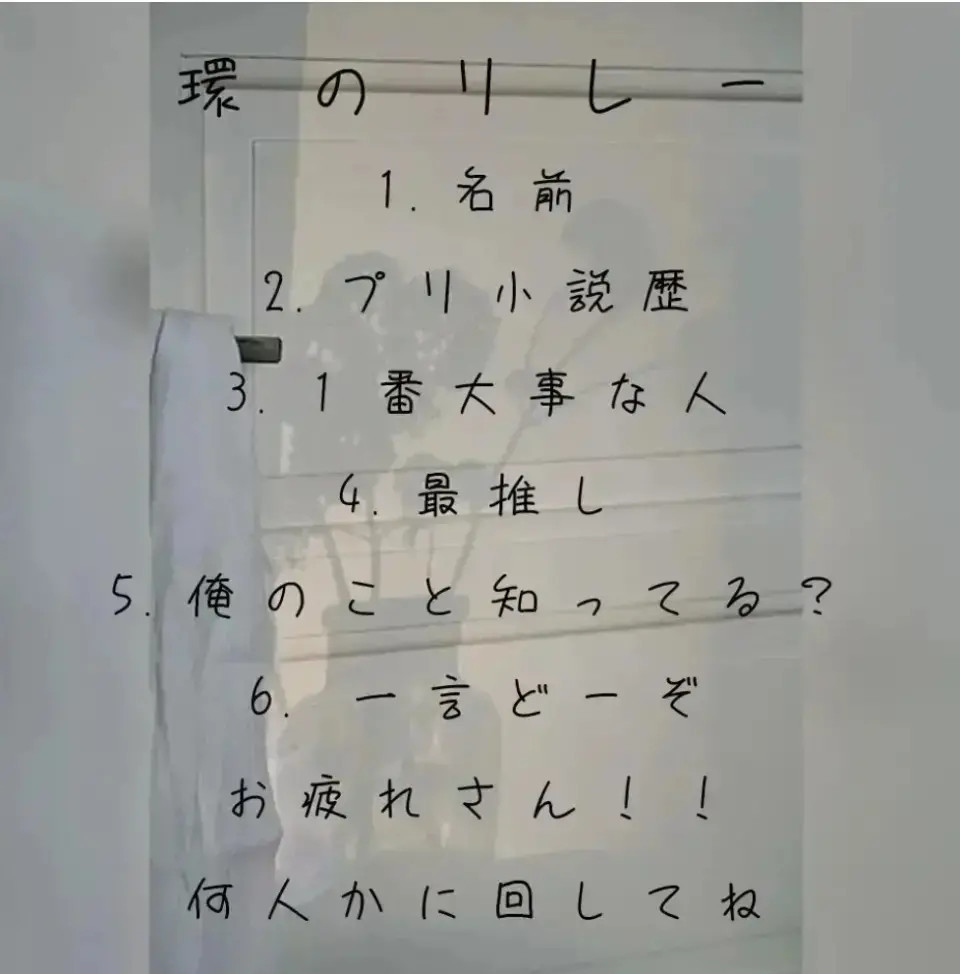 環のリレー
1.名前
2.プリ小説歴
3.1番大事な人
4.最推し
5.俺のこと知ってる?
6.一言どーぞ
お疲れさん!!
何人かに回してね